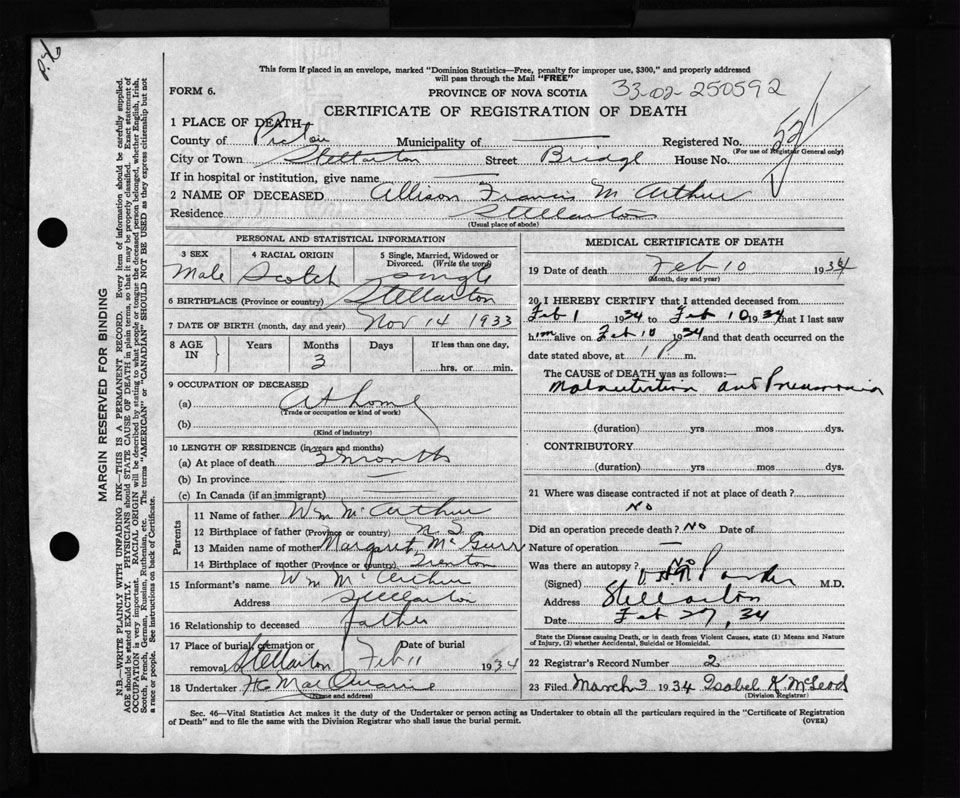 This form if placed in an envelope, marked "Dominion Statistics—Free, penalty for improper use, $300," and properly addressed
will pass through the Mail "FREE"
FORM 6.
PROVINCE OF NOVA SCOTIA
33-02-250592
CERTIFICATE OF REGISTRATION OF DEATH
1 PLACE OF DEATH
County of Pictou Municipality of — Registered No.
(For use of Registrar General only)
City or Town Stellarton Street Bridge House No.
If in hospital or institution, give name —
2 NAME OF DECEASED Allison Francis McArthur
Residence Stellarton
(Usual place of abode)
PERSONAL AND STATISTICAL INFORMATION
3 SEX Male
4 RACIAL ORIGIN Scotch
5 Single, Married, Widowed or Divorced. (Write the word) Single
6 BIRTHPLACE (Province or country) Stellarton
7 DATE OF BIRTH (month, day and year) Nov 14 1933
8 AGE IN Years Months Days If less than one day,
3
hrs. or min.
9 OCCUPATION OF DECEASED
(a) At home
(Trade or occupation or kind of work)
(b)
(Kind of industry)
10 LENGTH OF RESIDENCE (in years and months)
(a) At place of death months
(b) In province —
(c) In Canada (if an immigrant) —
Parents
11 Name of father Wm McArthur
12 Birthplace of father (Province or country) N. S.
13 Maiden name of mother Margaret McGurr
14 Birthplace of mother (Province or country) Trenton
15 Informant's name Wm McArthur
Address Stellarton
16 Relationship to deceased father
17 Place of burial, cremation or removal Stellarton Date of burial Feb 11 1934
18 Undertaker H MacQuarrie
(Name and address)
MEDICAL CERTIFICATE OF DEATH
19 Date of death Feb 10 1934
(Month, day and year)
20 I HEREBY CERTIFY that I attended deceased from
Feb 1 1934 to Feb 10 1934 that I last saw
him alive on Feb 10 1934 and that death occurred on the
date stated above, at 1 P m.
The CAUSE OF DEATH was as follows:—
Malnutrition and Pneumonia
(duration) yrs mos dys.
CONTRIBUTORY
(duration) yrs mos dys.
21 Where was disease contracted if not at place of death?
No
Did an operation precede death? No Date of
Nature of operation —
Was there an autopsy? No
(Signed) M.D.
Address Stellarton
Date Feb 27, 34
State the Disease causing Death, or in death from Violent Causes, state (1) Means and Nature
of Injury, (2) whether Accidental, Suicidal or Homicidal.
22 Registrar's Record Number 2
23 Filed March 3 1934 Isobel K McLeod
(Division Registrar)
Sec. 46—Vital Statistics Act makes it the duty of the Undertaker or person acting as Undertaker to obtain all the particulars required in the "Certificate of Registration
of Death" and to file the same with the Division Registrar who shall issue the burial permit.
(OVER)
MARGIN RESERVED FOR BINDING
N.B.—WRITE PLAINLY WITH UNFADING INK—THIS IS A PERMANENT RECORD. Every item of information should be carefully supplied.
AGE should be stated EXACTLY. PHYSICIANS should STATE CAUSE OF DEATH in plain terms, so that it may be properly classified. Exact statement of
OCCUPATION is very important. RACIAL ORIGIN will be described by stating to what people or tongue the deceased person belonged, whether English, Irish,
Scotch, French, German, Russian, Ruthenian, etc. The terms "AMERICAN" or "CANADIAN" SHOULD NOT BE USED as they express citizenship but not
a race or people. See instructions on back of Certificate.